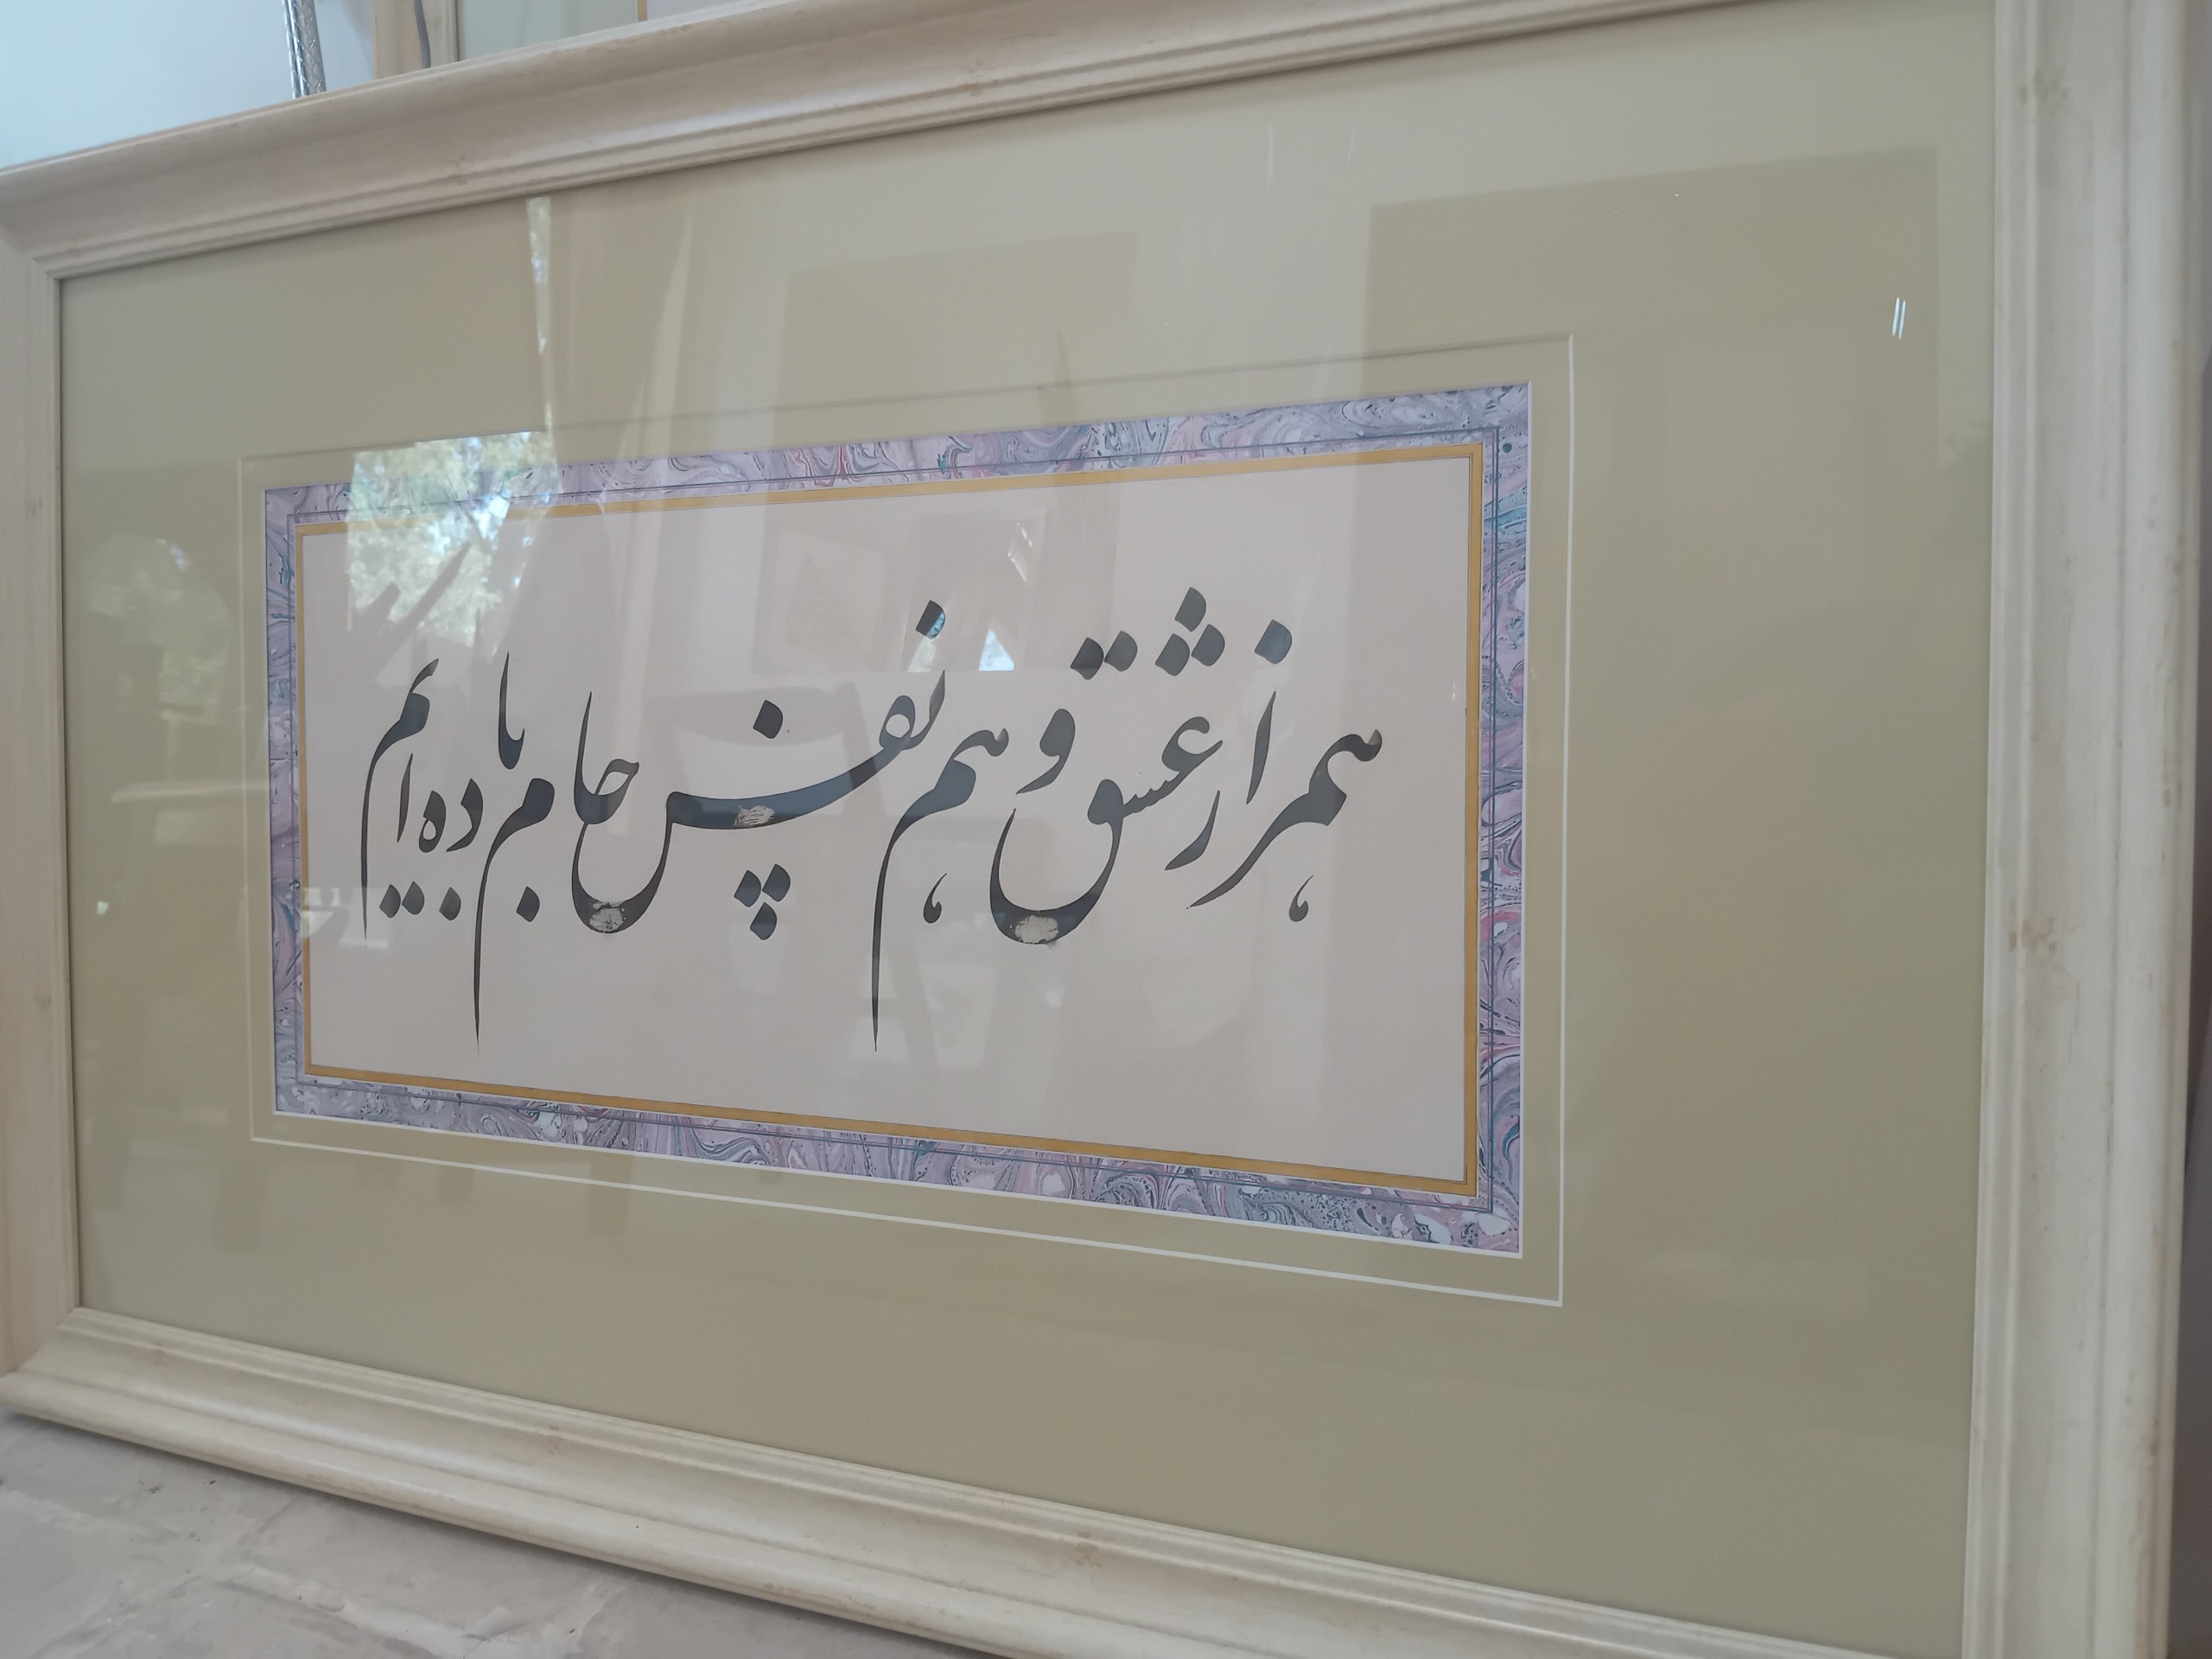 همراز عشق و هم نفس جام باده ایم